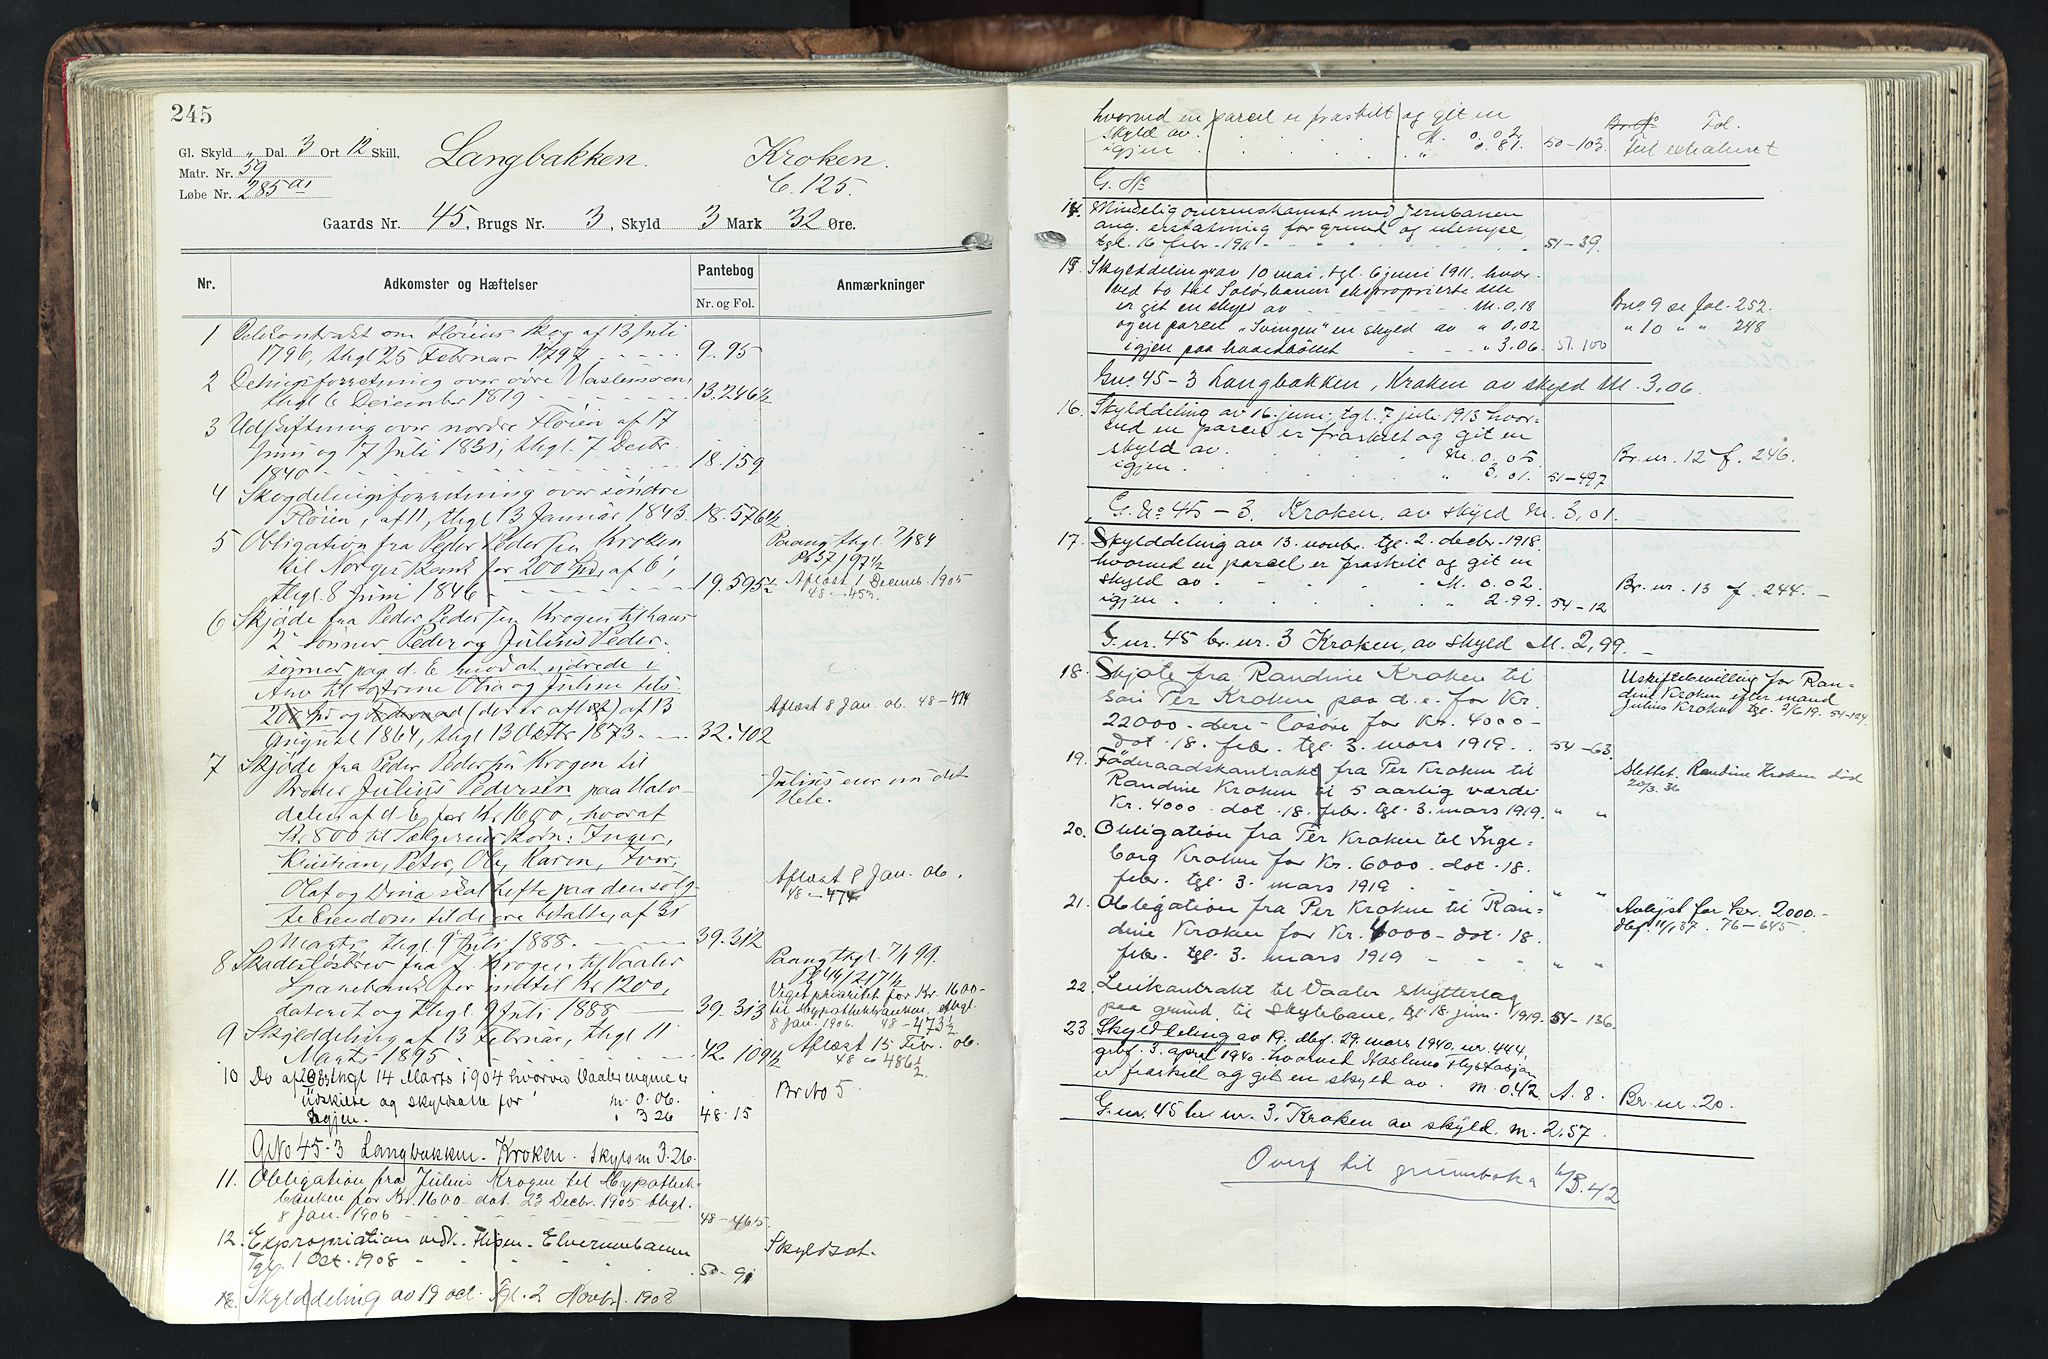 245
Gl. Skyld „ Dal. 3 Ort 12 Skill.
Matr. Nr. 59
Løbe Nr. 285 a1
Langbakken. Kroken.
C. 125.
Gaards Nr. 45, Brugs Nr. 3, Skyld 3 Mark 32 Øre.
Nr. Adkomster og Hæftelser Pantebog Anmærkninger
Nr. og Fol.
1 Delekontrakt om Fløiens Skog af 13 Juli
1796, thgl 25 Februar 1797 9.95
2 Delingsforretning over øvre Haslemoen,
thgl 6 December 1819 13.246½
3 Udskiftning over nordre Fløien af 17
Juni og 17 Juli 1831, thgl. 7 Decbr
1840 18.159
4 Skogdelingsforretning over søndre
Fløien, af 11, thgl 13 Januar 1843. 18.576½
5 Obligation fra Peder Pedersen Kroken Paaang thgl 7/1 84
til Norges Bank for 200 Spd, af 6, Pb 37 197½
thgl. 8 Juni 1846 19.595½ Aflæst 1 Decemb. 1905
48 - 453.
6 Skjøde fra Peder Pedersen Krogen til hans
2 Sønner Peder og Julius Peder-
sønner paa d. E. mod at udrede i
Arv til Søstrene Olia og Juline
200 Spd og Føderaad (der er afløst) af 13 Aflæst 8 Jan. 06. 48-474
August 1864, thgl 13 Oktbr 1873. 32.402
7 Skjøde fra Peder Pedersen Krogen til
Broder Julius Pedersen paa Halv- Julius eier nu det
delen af d. E. for Kr 1600, hvoraf Hele.
Kr. 800 til Sælgerens Børn: Inger,
Kristian, Peter, Ole, Karen, Iver,
Olaf og Dina skal hefte paa den solg- Aflæst 8 Jan. 06.
te Eiendom til de ere betalte, af 31 48-474
Marts, thgl. 9 Juli 1888. 39.312
8 Skadesløsbrev fra J. Krogen til Vaaler Paaang thgl. 7/1 99.
Sparebank for indtil Kr 1200, Pb 44/217½
dateret og thgl. 9 Juli 1888 39.313 Veget prioritet for Kr. 1600-
til Hypothekbanken. thgl.
8 Jan. 1906. 48-473½
9 Skylddeling af 13 Februar, thgl 11 Aflæst 15 Febr. 06.
Marts 1895 42.109½ 48 - 486½
10 Do af thgl 14 Marts 1904 hvorved Vaalerengene er Br No 5
udskilte og skyldsatte for m 0.06.
igjen. " 3 26 48-15
GNo 45-3 Langbakken-Kroken. Skyld m 3.26.
11. Obligation fra Julius Krogen til Hypothek-
banken for Kr. 1600 dat. 23 Decbr. 1905 thgl.
8 Jan. 1906 48-465.
12. Expropriation vedk. Flisen-Elverumbanen Skyldsat.
Tgl. 1 Oct. 1908 50-91
13. Skylddeling av 19 oct. Tgl. 2 Novbr. 1908
hvorved en parcel er fraskilt og git en Br. No Fol.
skyld av. M. 0.02
igjen " 0.81. 50-103.
G. No
14. Mindelig overenskomst med Jernbanen
ang. erstatning for grund og ulempe,
tgl. 16 febr. 1911 51-39.
15. Skylddeling av 10 mai, tgl. 6 juni 1911, hvor-
ved to til Solørbanen exproprierte dele
er git en skyld av M. 0,18 Bno. 9 se fol. 252.
og en parcel „Svingen" en skyld av „ 0,02 „ 10 „ „ 248
igjen paa hovedbøllet „ 3.06. 51.100
Gno. 45-3 Langbakken, Kroken av skyld M. 3,06.
16. Skylddeling av 16. juni, tgl. 7 juli 1913 hvor-
ved en parcel er fraskilt og git en
skyld av. M. 0.05 Br. nr. 12 f. 246.
igjen. „ 3,01. 51-497
G. No 45-3. Kroken, av skyld M. 3,01.
17. Skylddeling av 13. novbr. tgl. 2. decbr. 1918.
hvorved en parcel er fraskilt og git en
skyld av M. 0.02 Br. nr. 13 f. 244.
igjen „ 2.99. 54-12
G. nr. 45 br. nr. 3 Kroken, av skyld M. 2,99.
18. Skjøte fra Randine Kroken til Uskiftebevilling for Ran-
søn Per Kroken paa d. e. for Kr. dine Kroken efter mand
22000 - derav løsøre for Kr. 4000- Julius Kroken tgl. 3/6 19. 54-124
dat. 18. febr. tgl. 3. mars 1919. 54-63.
19. Føderaadskontrakt fra Per Kroken til Slettet. Randine Kroken død
Randine Kroken til 5 aarlig værdi 20/3. 36
Kr. 4000 dat. 18. febr. tgl. 3. mars 1919. „ „
20. Obligation fra Per Kroken til Inge-
borg Kroken for Kr. 6000 dat. 18.
febr. tgl. 3. mars 1919 „ „
21. Obligation fra Per Kroken til Ran- Avlyst for kr. 2000.-
dine Kroken for Kr. 4000 - dat. 18. dbf 11/1 37. 76-645.
febr. tgl. 3. mars 1919 „ „
22. Leiekontrakt til Vaaler Skytterlag
paa grund til Skytebane, tgl 18 juni 1919. 54-136.
23 Skylddeling av 19. dbf. 29. mars 1940. nr. 444,
grbf. 3. april 1940. hvorved Haslemo Flystasjon
er fraskilt og git en skyld av m 0.42 A. 8. Br. nr. 20.
G. nr. 45 br. nr. 3. Kroken av skyld. m. 2.57.
Overf til grunnboka 6/3.42